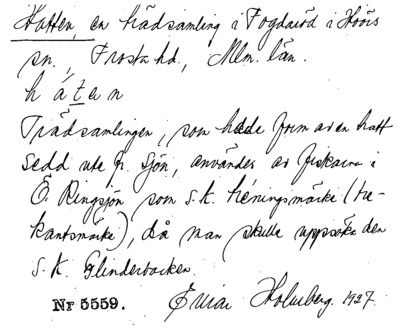 Hatten, en trädsamling i Fogdaröd i Höörs
sn., Frosta hd., Mlm. län.
h á t e n
Trädsamlingen, som hade form av en hatt
sedd ute fr. sjön, användes av fiskarna i
Ö. Ringsjön som s.k. héningsmärke (tre-
kantsmärke), då man skulle uppsöka den
s.k. Glinderbacken.
Nr 5559. Holmberg. 1927.